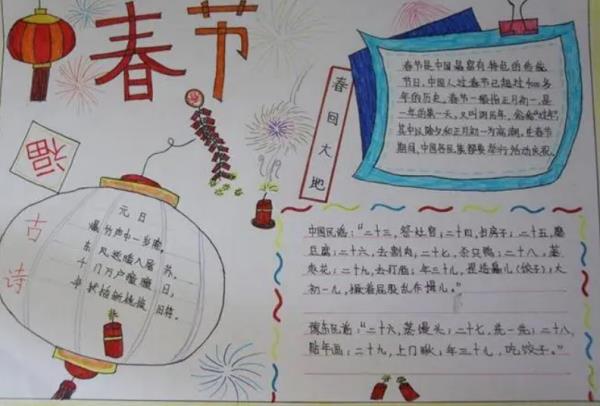 春节
春节是中国最富有特色的传统
节日,中国人过春节已超过4000多
年的历史。春节一般指正月初一,是
一年的第一天,又叫阴历年,俗称"过年"
其中以除夕和正月初一为高潮。在春节
期间,中国各民族都要举行活动庆祝。
春回大地
福
古诗
元日
爆竹声中一岁除,
东风送暖入屠苏.
千门万户瞳瞳日,
新桃换旧符.
中国民谣:"二十三,祭灶官;二十四,扫房子;二十五,磨
豆腐;二十六,去割肉;二十七,杀只鸡;二十八,蒸
枣花;二十九,去打酒;年三十儿,捏造鼻儿(饺子);大
初一儿,撅着屁股乱作揖儿。"
豫东民谣:"二十六,蒸馒头;二十七,洗一洗;二十八,
贴年画;二十九,上门瞅;年三十儿,吃饺子。"